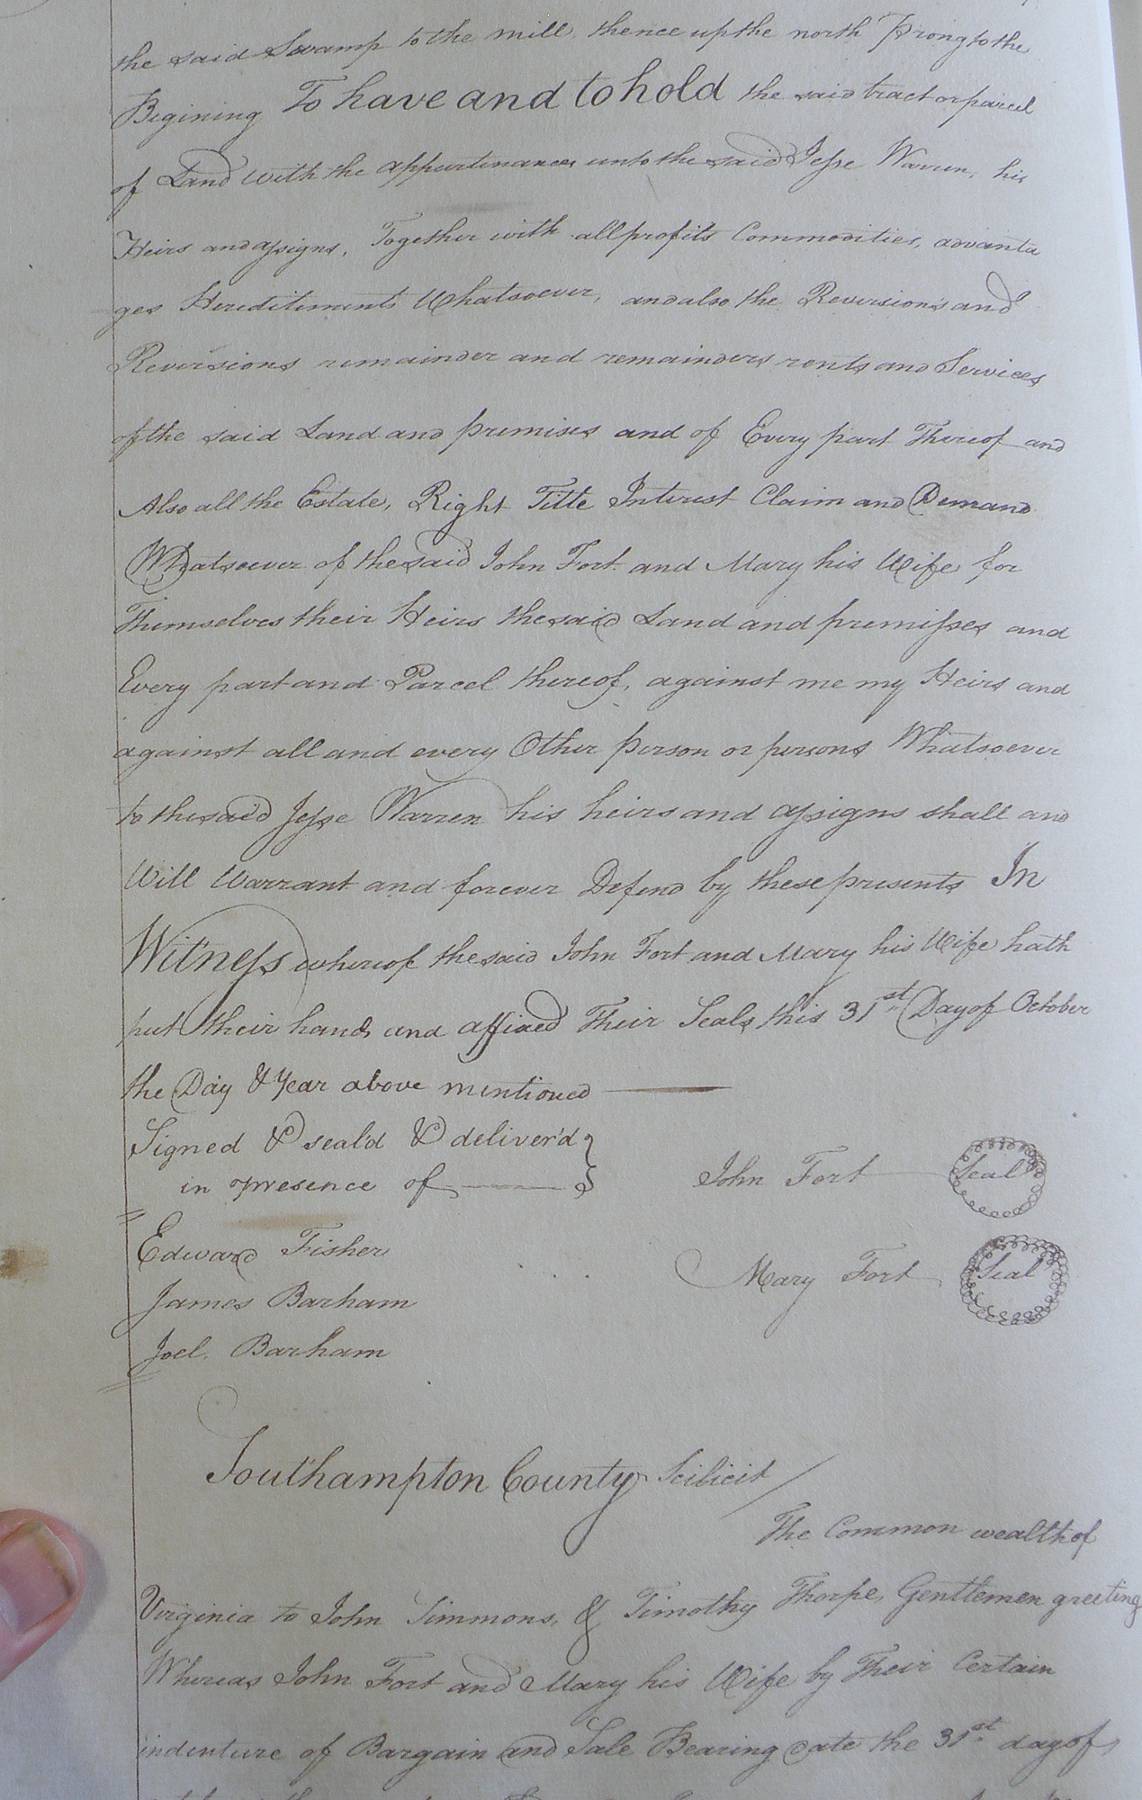 the said Swamp to the mill, thence up the north Prong to the
Begining To have and to hold the said tract or parcel
of Land with the appurtinances unto the said Jesse Warren, his
Heirs and assigns, Together with all profits Commodities, advanta
ges Hereditiments Whatsoever, and also the Reversions and
Reversions remainder and remainders rents and Services
of the said Land and premises and of Every part Thereof and
Also all the Estate, Right Title Interest Claim and Demand
Whatsoever of the said John Fort and Mary his Wife for
Themselves their Heirs the said Land and premisses and
Every part and Parcel thereof, against me my Heirs and
against all and every Other person or persons Whatsoever
to the said Jesse Warren his heirs and assigns shall and
Will Warrant and forever Defend by these presents In
Witness whereof the said John Fort and Mary his Wife hath
put their hands and affixed Their Seals this 31st Day of October
the Day & Year above mentioned
Signed & seal'd & deliver'd
in presence of
John Fort Seal
Edward Fisher
Mary Fort Seal
James Barham
Joel. Barham
Southampton County Scilicit
The Common wealth of
Virginia to John Simmons, & Timothy Thorpe, Gentlemen greeting
Whereas John Fort and Mary his Wife by Their Certain
indenture of Bargain and Sale Bearing date the 31st day of